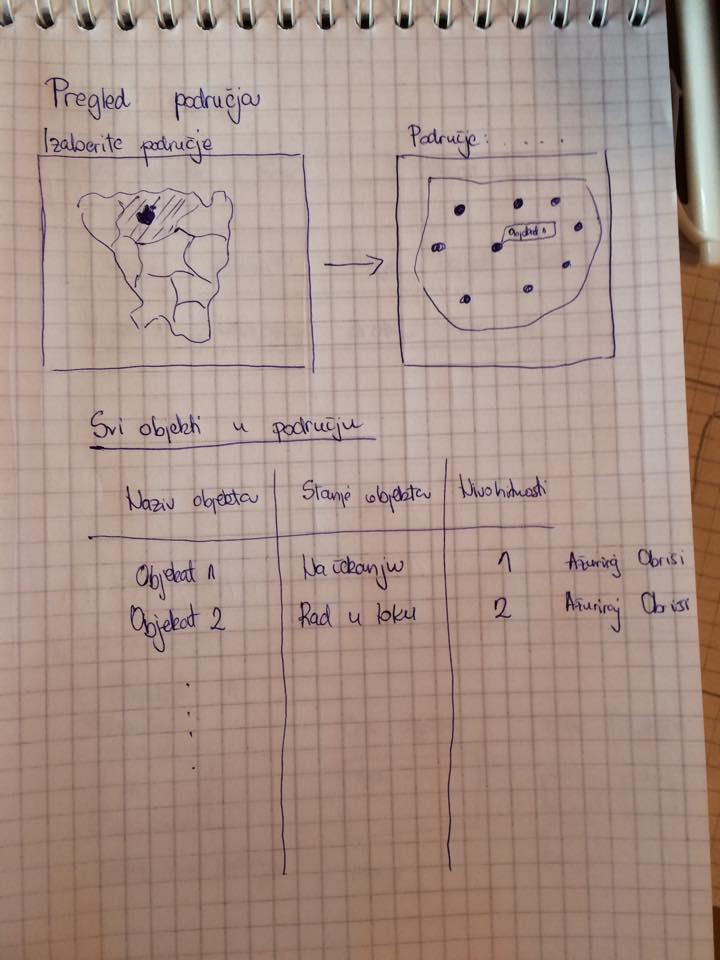 Pregled područja
Izaberite područje
Područje: . . . . .
Objekat 1
Svi objekti u području
Naziv objekta Stanje objekta Nivo hitnosti
Objekat 1 Na čekanju 1 Ažuriraj Obriši
Objekat 2 Rad u toku 2 Ažuriraj Obriši